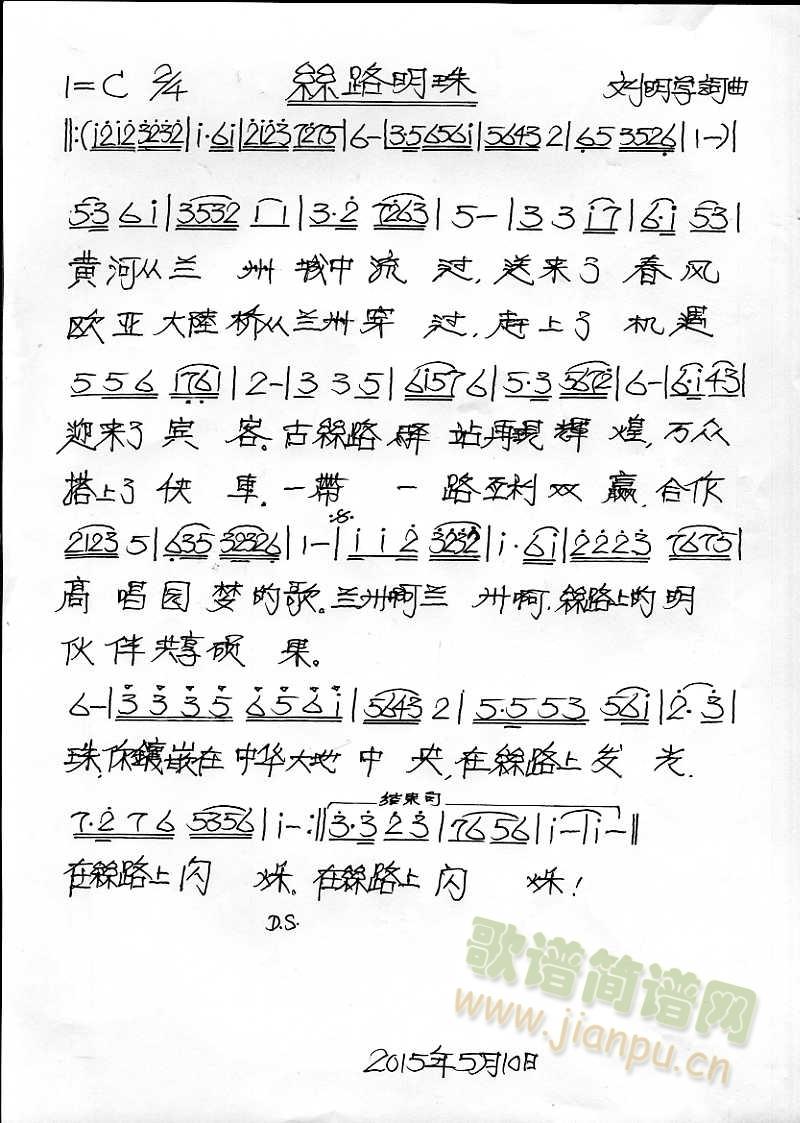 1=C 2/4 絲路明珠 刘明学詞曲
‖:(i2i2 3232|i·6i|2123 7275|6-|3·5 656i|5643 2|6·5 3526|1-)|
53 6i|3532 11|3·2 7263|5-|3 3 i7|6·i 53|
黄河从兰 州 城中流 过,送来了春风
欧亚大陸桥从兰州穿 过,赶上了机遇
5 5 6 1761|2-|3 3 5|6i57 6|5·3 5672|6-|6·i 43|
迎来了宾 客。古絲路驿 站再現輝 煌,万众
搭上了快 車。一帶 一 路互利双 赢,合作
2123 5|635 32326|1-|i i 2 3232|i·6i|2 2 2 3 7675|
高唱园梦的歌。兰州啊兰 州啊,絲路上的明
伙伴共享硕 果。
6-|3 3 3 5 6 5 6 i|5643 2|5·5 5 3 56i|2·3|
珠,你鑲嵌在中华大地中 央,在絲路上发 光.
7·2 7 6 5356|i-:‖3·3 2 3|76 56|i-|i-‖
结束句
在絲路上闪 烁。在絲路上闪 烁!
D.S.
歌谱简谱网
www.jianpu.cn
2015年5月10日